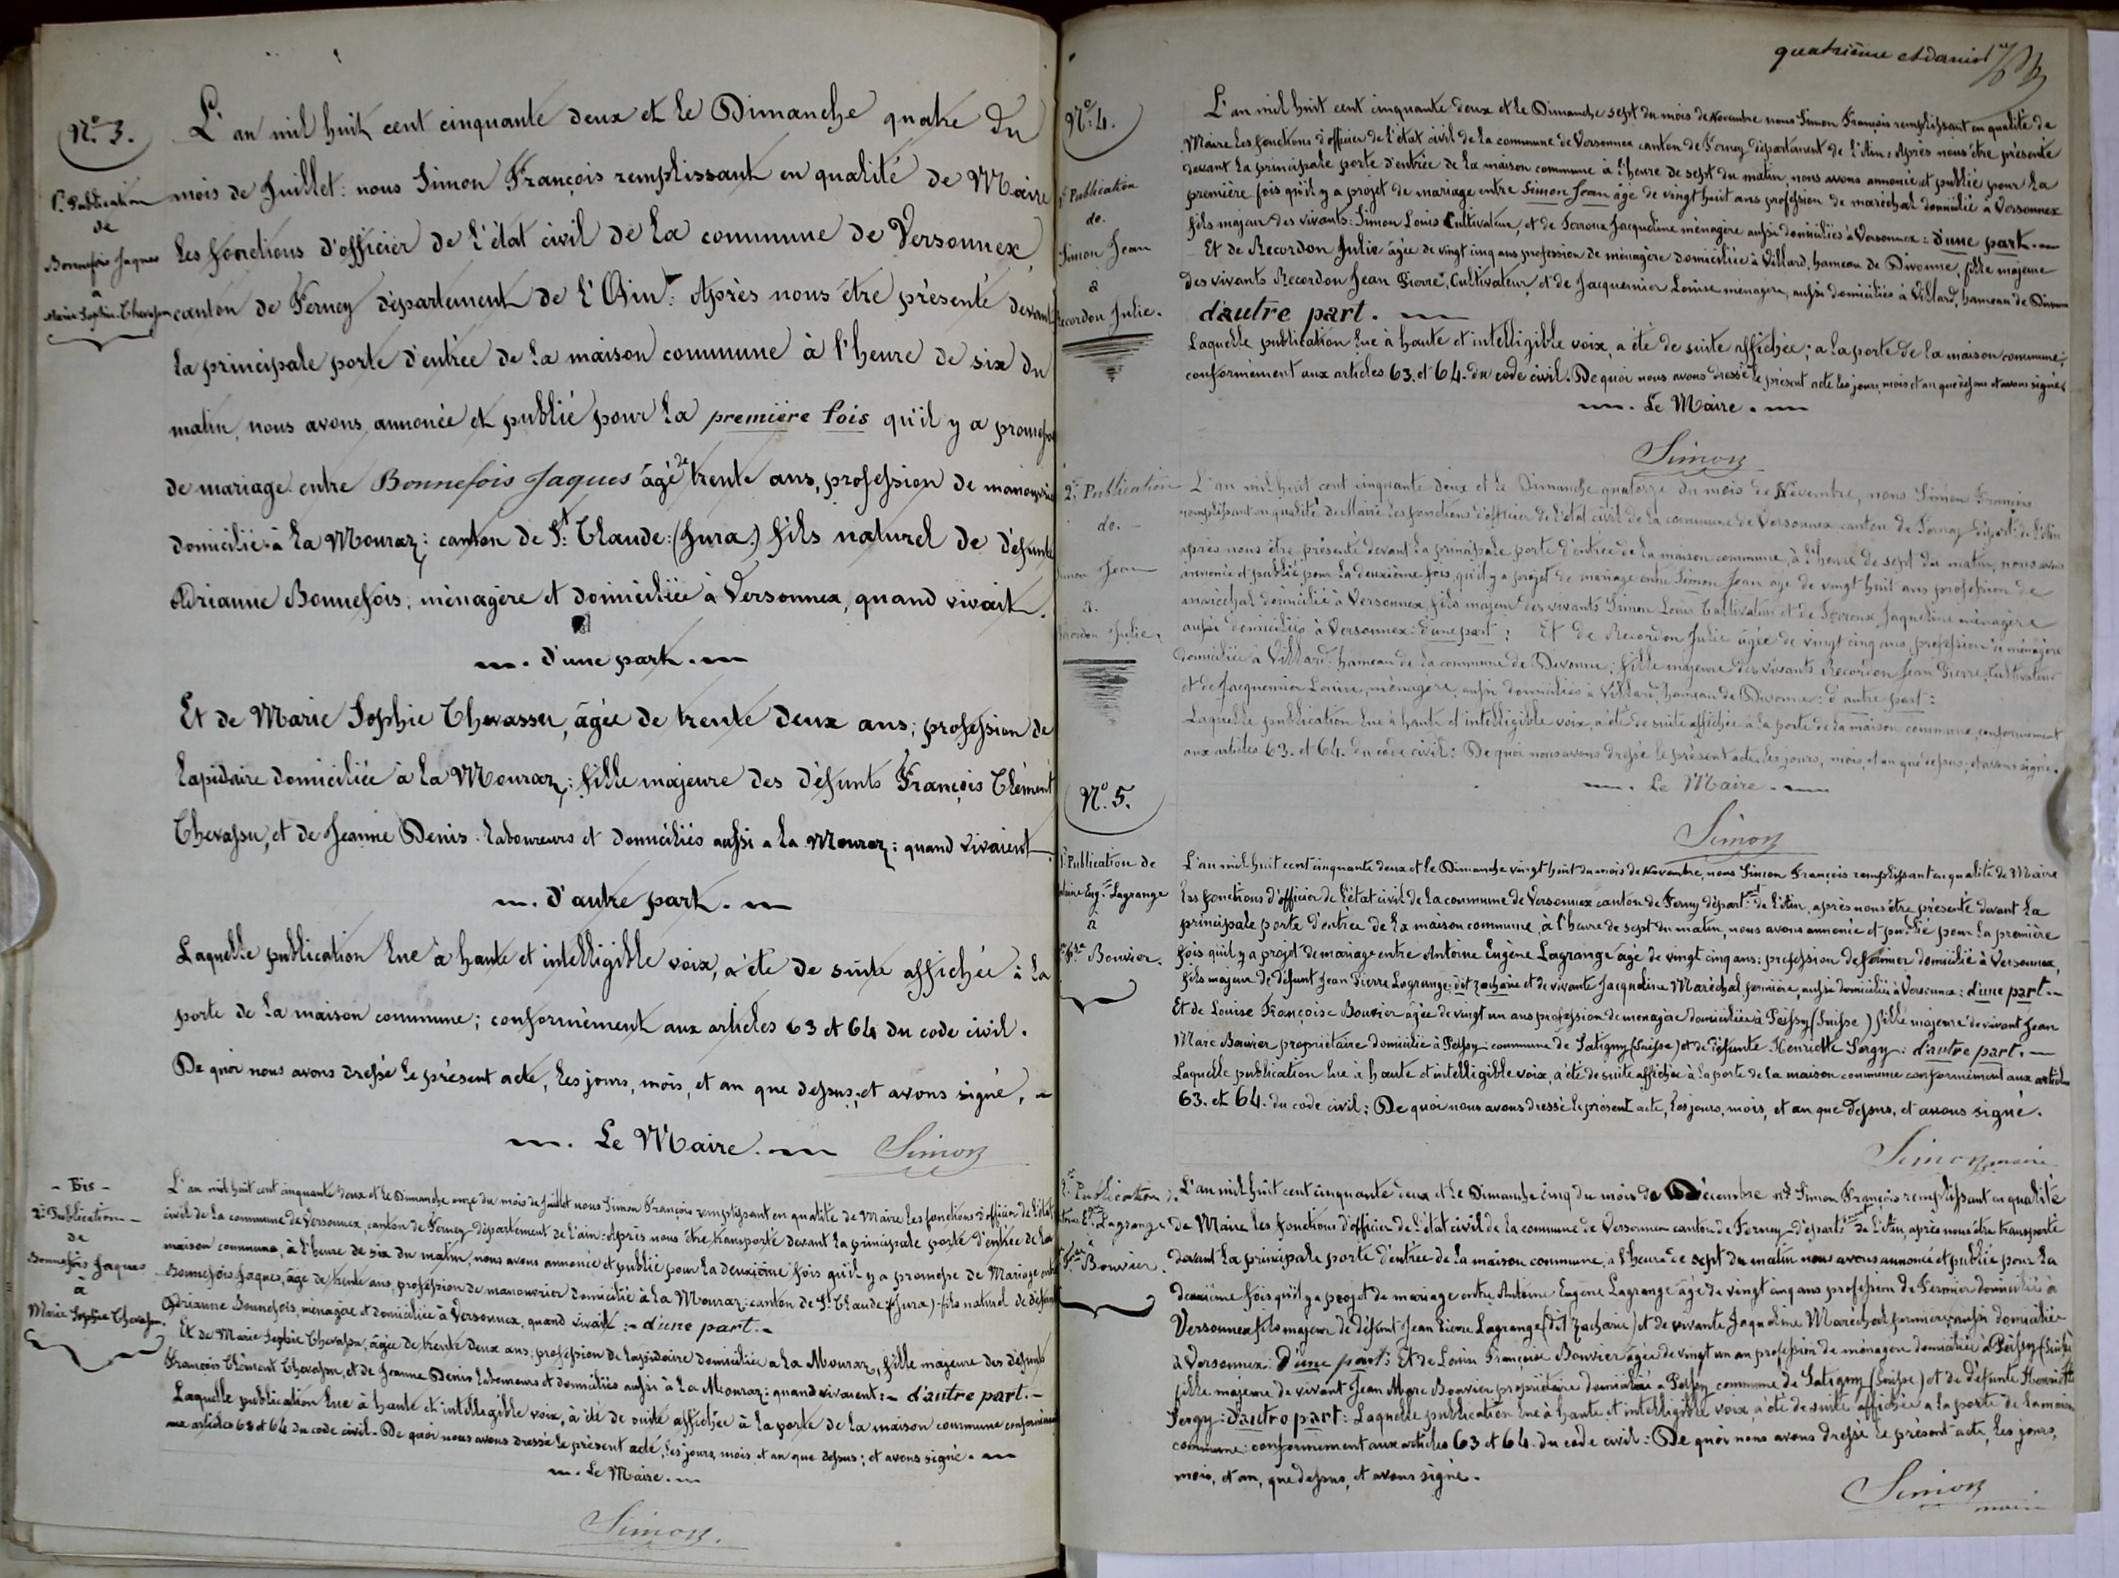 N.º 3.
1.re Publication
de
Bonnefois Jaques
à
Marie Sophie Chevassu
L'an mil huit cent cinquante deux et le Dimanche quatre du
mois de Juillet: nous Simon François remplissant en qualité de Maire
les fonctions d'officier de l'état civil de la commune de Versonnex
canton de Ferney département de l'Ain: Après nous être présenté devant
la principale porte d'entrée de la maison commune à l'heure de six du
matin, nous avons annoncé et publié pour la première fois qu'il y a promesse
de mariage entre Bonnefois Jaques âgé de trente ans, profession de manouvrier
domicilié à la Mouraz: canton de St. Claude: (Jura.) fils naturel de défunte
Adrianne Bonnefois, ménagère et domiciliée à Versonnex, quand vivait.
d'une part.
Et de Marie Sophie Chevassu, âgée de trente deux ans; profession de
lapidaire domiciliée à la Mouraz: fille majeure des défunts François Clément
Chevassu, et de Jeanne Denis laboureurs et domiciliés aussi a la Mouraz: quand vivaient
d'autre part.
Laquelle publication lue à haute et intelligible voix, a été de suite affichée à la
porte de la maison commune; conformément aux articles 63 et 64 du code civil.
De quoi nous avons dressé le présent acte, les jours, mois, et an que dessus; et avons signé.
Le Maire. Simon
- Bis -
2.e Publication
de
Bonnefois Jaques
à
Marie Sophie Chevassu.
L'an mil huit cent cinquante deux et le Dimanche onze du mois de Juillet nous Simon François remplissant en qualité de Maire les fonctions d'officier de l'état
civil de la commune de Versonnex, canton de Ferney département de l'ain: Après nous être transporté devant la principale porte d'entrée de la
maison commune, à l'heure de six du matin, nous avons annoncé et publié pour la deuxième fois qu'il y a promesse de Mariage entre
Bonnefois Jaques, âgé de trente ans, profession de manouvrier domicilié à la Mouraz: canton de St. Claude: (Jura) fils naturel de défunte
Adrianne Bonnefois, ménagère et domiciliée à Versonnex, quand vivait: d'une part.
Et de Marie Sophie Chevassu, âgée de trente deux ans, profession de lapidaire domiciliée a la Mouraz, fille majeure des défunts
François Clément Chevassu, et de Jeanne Denis laboureurs et domiciliés aussi à la Mouraz: quand vivaient: d'autre part.
Laquelle publication lue à haute et intelligible voix, à été de suite affichée à la porte de la maison commune conformément
aux articles 63 et 64 du code civil. De quoi nous avons dressé le présent acte, les jours, mois et an que dessus; et avons signé.
Le Maire.
Simon.
quatrième et dernier
N.º 4.
1.e Publication
de.
Simon Jean
à
Recordon Julie.
L'an mil huit cent cinquante deux et le Dimanche sept du mois de Novembre nous Simon François remplissant en qualité de
Maire les fonctions d'officier de l'état civil de la commune de Versonnex canton de Ferney département de l'Ain, Après nous être présenté
devant la principale porte d'entrée de la maison commune à l'heure de sept du matin, nous avons annoncé et publié pour la
première fois qu'il y a projet de mariage entre Simon Jean âgé de vingt huit ans profession de maréchal domicilié à Versonnex
fils majeur des vivants: Simon Louis Cultivateur, et de Ferroux Jacqueline ménagère aussi domiciliés à Versonnex: d'une part.
Et de Recordon Julie âgée de vingt cinq ans profession de ménagère domiciliée à Villard, hameau de Divonne, fille majeure
des vivants Recordon Jean Pierre, Cultivateur, et de Jacquemier Louise ménagère, aussi domiciliés à Villard, hameau de Divonne
d'autre part.
Laquelle publication lue à haute et intelligible voix, a été de suite affichée; a la porte de la maison commune,
conformément aux articles 63. et 64. du code civil. De quoi nous avons dressé le présent acte les jours, mois et an que dessus et avons signé.
Le Maire.
Simon
2.e Publication
de.
Simon Jean
à.
Recordon Julie.
L'an mil huit cent cinquante deux et le Dimanche quatorze du mois de Novembre, nous Simon François
remplissant en qualité de Maire les fonctions d'officier de l'état civil de la commune de Versonnex canton de Ferney départ.t de l'Ain
après nous être présenté devant la principale porte d'entrée de la maison commune, à l'heure de sept du matin, nous avons
annoncé et publié pour la deuxième fois, qu'il y a projet de mariage entre Simon Jean âgé de vingt huit ans profession de
maréchal domicilié à Versonnex fils majeur des vivants Simon Louis Cultivateur et de Ferroux Jaqueline ménagère
aussi domiciliés à Versonnex: d'une part; Et de Recordon Julie âgée de vingt cinq ans, profession de ménagère
domiciliée à Villard hameau de la commune de Divonne; fille majeure des vivants Recordon Jean Pierre, Cultivateur
et de Jacquemier Louise, ménagère, aussi domiciliés à Villard, hameau de Divonne: d'autre part:
Laquelle publication lue à haute et intelligible voix, a été de suite affichée à la porte de la maison commune, conformément
aux articles 63. et 64. du code civil: De quoi nous avons dressé le présent acte les jours, mois, et an que dessus, et avons signé.
Le Maire.
Simon
N.º 5.
1.e Publication de
Antoine Eug.ne Lagrange
à
Bouvier.
L'an mil huit cent cinquante deux et le Dimanche vingt huit du mois de Novembre, nous Simon François remplissant en qualité de Maire
les fonctions d'officier de l'état civil de la commune de Versonnex canton de Ferney départ.t de l'Ain, après nous être présenté devant la
principale porte d'entrée de la maison commune, à l'heure de sept du matin, nous avons annoncé et publié pour la première
fois qu'il y a projet de mariage entre Antoine Eugène Lagrange âgé de vingt cinq ans: profession de fermier domicilié à Versonnex,
fils majeur de défunt Jean Pierre Lagrange: dit Zacharie et de vivante Jacqueline Maréchal fermière, aussi domiciliée à Versonnex: d'une part.
Et de Louise Françoise Bouvier âgée de vingt un ans profession de ménagère domiciliée à Peissy (Suisse) fille majeure de vivant Jean
Marc Bouvier propriétaire domicilié à Peissy: commune de Satigny (Suisse) et de défunte Henriette Sergy: d'autre part.
Laquelle publication lue à haute et intelligible voix, a été de suite affichée à la porte de la maison commune conformément aux articles
63. et 64. du code civil; De quoi nous avons dressé le présent acte, les jours, mois, et an que dessus, et avons signé.
Simon maire
2.e Publication de
Antoine Eug.ne Lagrange
à
Bouvier.
L'an mil huit cent cinquante deux et le Dimanche cinq du mois de Décembre nous Simon François remplissant en qualité
de Maire les fonctions d'officier de l'état civil de la commune de Versonnex canton de Ferney départ de l'Ain, après nous être transporté
devant la principale porte d'entrée de la maison commune, à l'heure de sept du matin nous avons annoncé et publié pour la
deuxième fois qu'il y a projet de mariage entre Antoine Eugène Lagrange âgé de vingt cinq ans profession de Fermier domicilié à
Versonnex fils majeur de défunt Jean Pierre Lagrange (dit Zacharie) et de vivante Jaqueline Maréchal fermière, aussi domiciliée
à Versonnex: d'une part: Et de Louise Françoise Bouvier âgée de vingt un an profession de ménagère domiciliée à Peissy (Suisse)
fille majeure de vivant Jean Marc Bouvier propriétaire domicilié à Peissy commune de Satigny (Suisse) et de défunte Henriette
Sergy: d'autre part: Laquelle publication lue à haute et intelligible voix, a été de suite affichée a la porte de la maison
commune: conformément aux articles 63 et 64. du code civil: De quoi nous avons dressé le présent acte, les jours,
mois, et an, que dessus, et avons signé.
Simon
maire